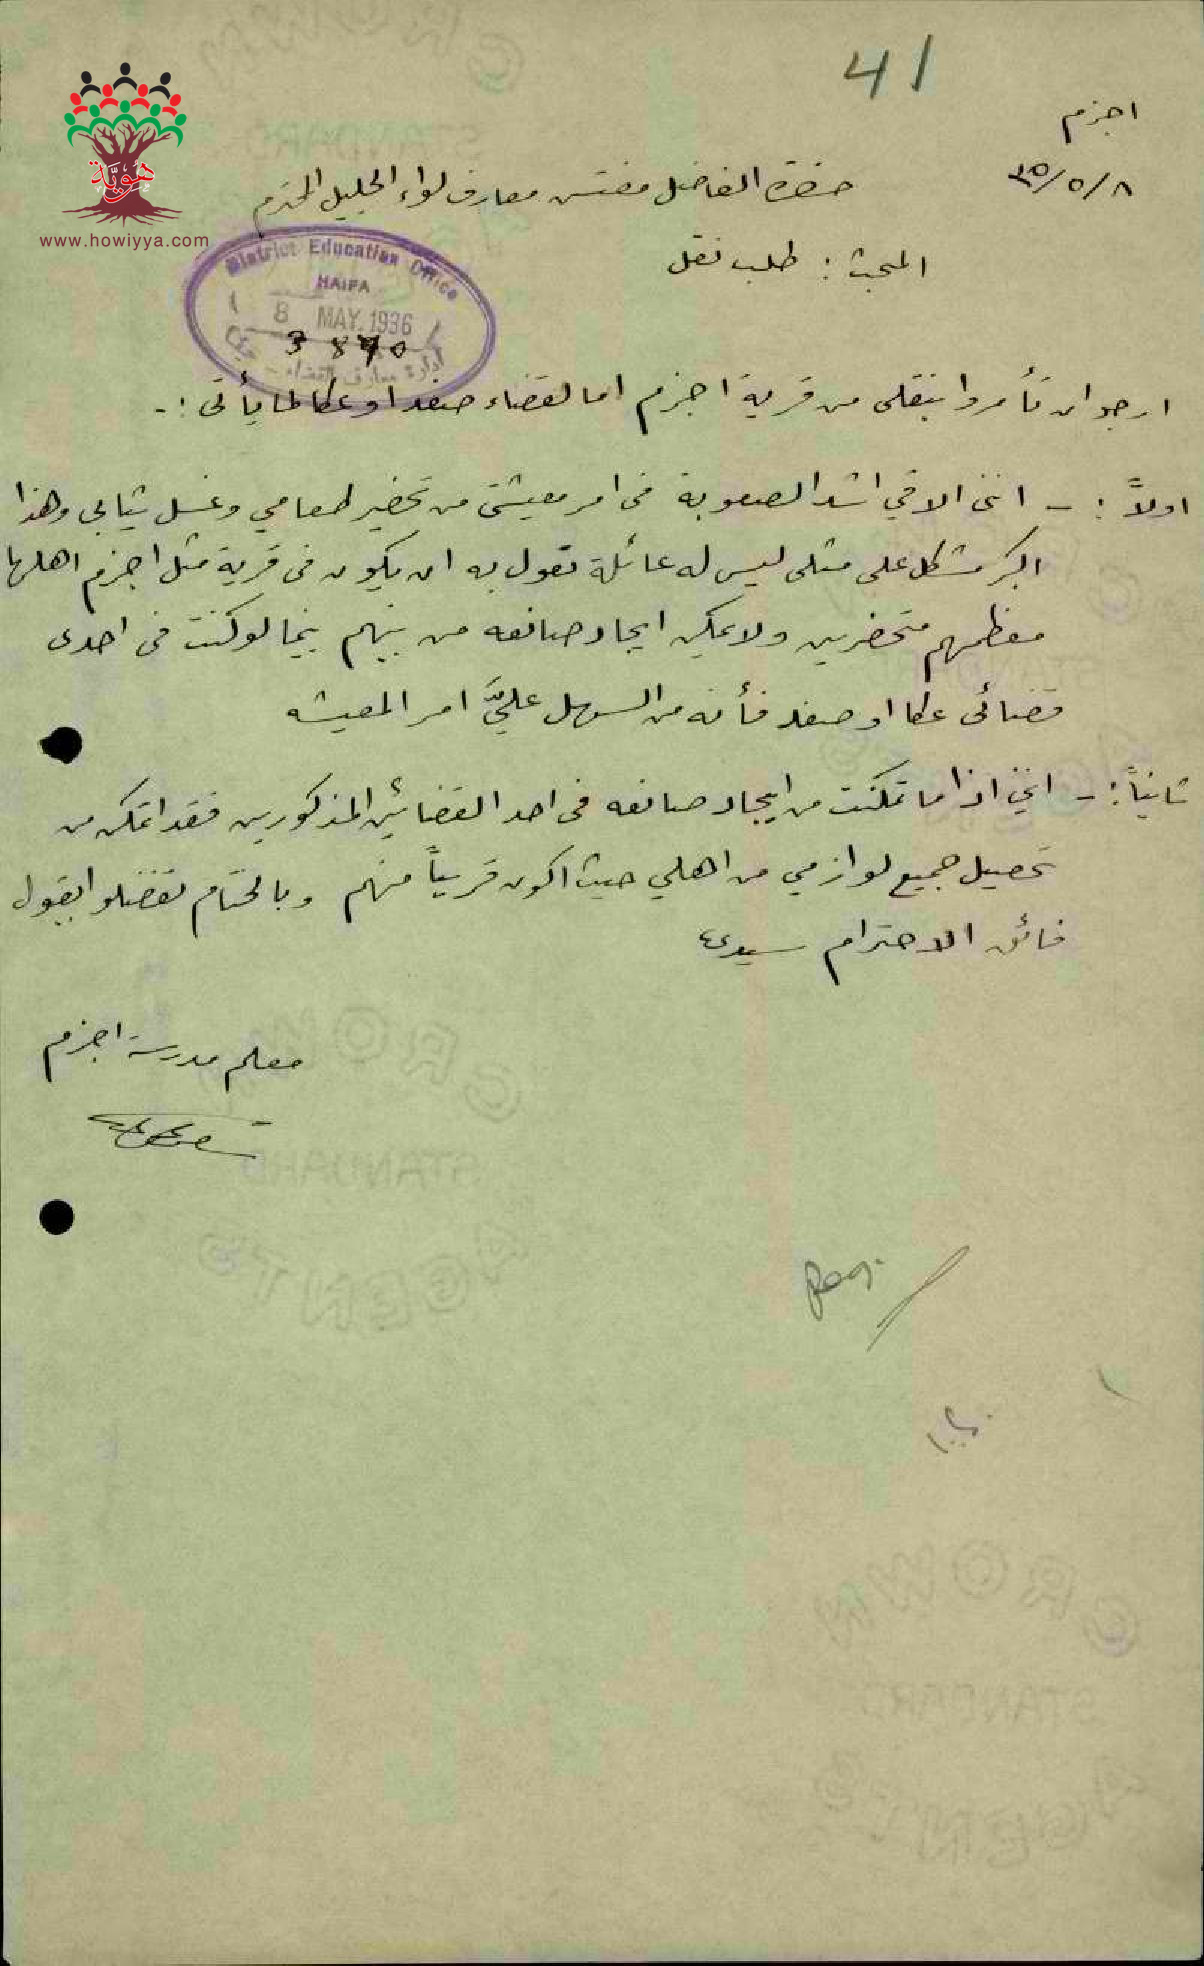 41
اجزم
٣٥/٥/٨
حضرة الفاضل مفتش معارف لواء الجليل المحترم
هوية
www.howiyya.com
المبحث : طلب نقل
District Education Office
HAIFA
8 MAY. 1936
3870
ادارة معارف القضاء - حيفا
ارجو ان تأمروا بنقلي من قرية اجزم اما لقضاء صفد او عكا لما يأتي :-
اولاً : - انني الاقي اشد الصعوبة في امر معيشتي من تحضير طعامي وغسل ثيابي وهذا
اكبر مشكل على مثلي ليس له عائلة تقول به ان يكون في قرية مثل اجزم اهلها
معظمهم متحضرين ولا يمكن ايجاد صانعه من بينهم بينما لو كنت في احدى
قضائي عكا او صفد فأنه من السهل عليَّ امر المعيشه
ثانياً : - انني اذا ما تمكنت من ايجاد صانعه في احد القضائين المذكورين فقد اتمكن من
تحصيل جميع لوازمي من اهلي حيث اكون قريباً منهم وبالختام تفضلوا بقبول
فائق الاحترام سيدي
معلم مدرسة اجزم
CROWN
STANDARD
AGENTS
CROWN
STANDARD
AGENTS